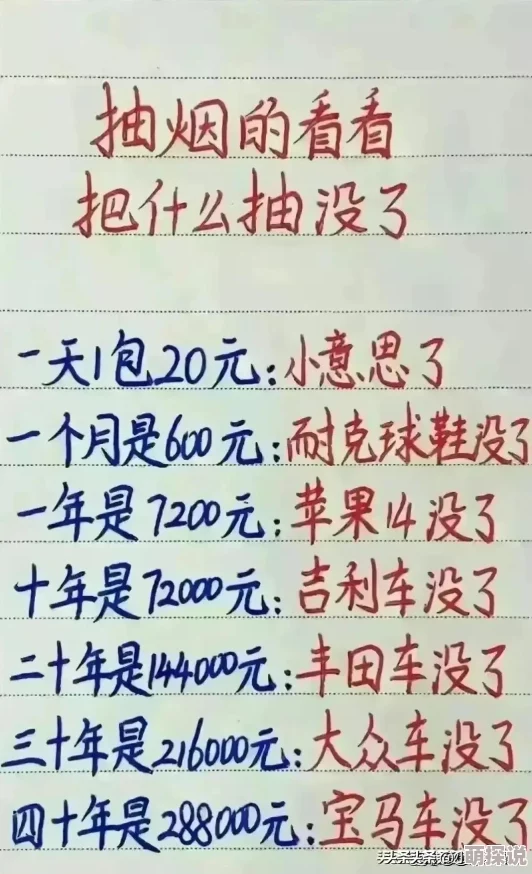 抽烟的看看
把什么抽没了
一天1包20元:小意思了
一个月是600元:耐克球鞋没了
一年是7200元:苹果14没了
十年是72000元:吉利车没了
二十年是144000元:丰田车没了
三十年是216000元:大众车没了
四十年是288000元:宝马车没了
头条
萌探说